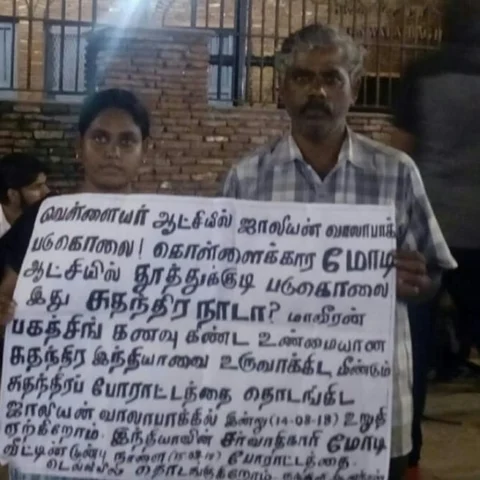 வெள்ளையர் ஆட்சியில் ஜாலியன் வாலாபாக்
படுகொலை! கொள்ளைக்கார மோடி
ஆட்சியில் தூத்துக்குடி படுகொலை
இது சுதந்திர நாடா? மாவீரன்
பகத்சிங் கனவு கண்ட உண்மையான
சுதந்திர இந்தியாவை உருவாக்கிட மீண்டும்
சுதந்திரப் போராட்டத்தை தொடங்கிட
ஜாலியன் வாலாபாக்கில் இன்று (14-08-18) உறுதி
ஏற்கிறோம். இந்தியாவின் சர்வாதிகாரி மோடி
வீட்டின் முன்பு நாளை போராட்டத்தை
டெல்லியில் தொடங்குகிறோம்